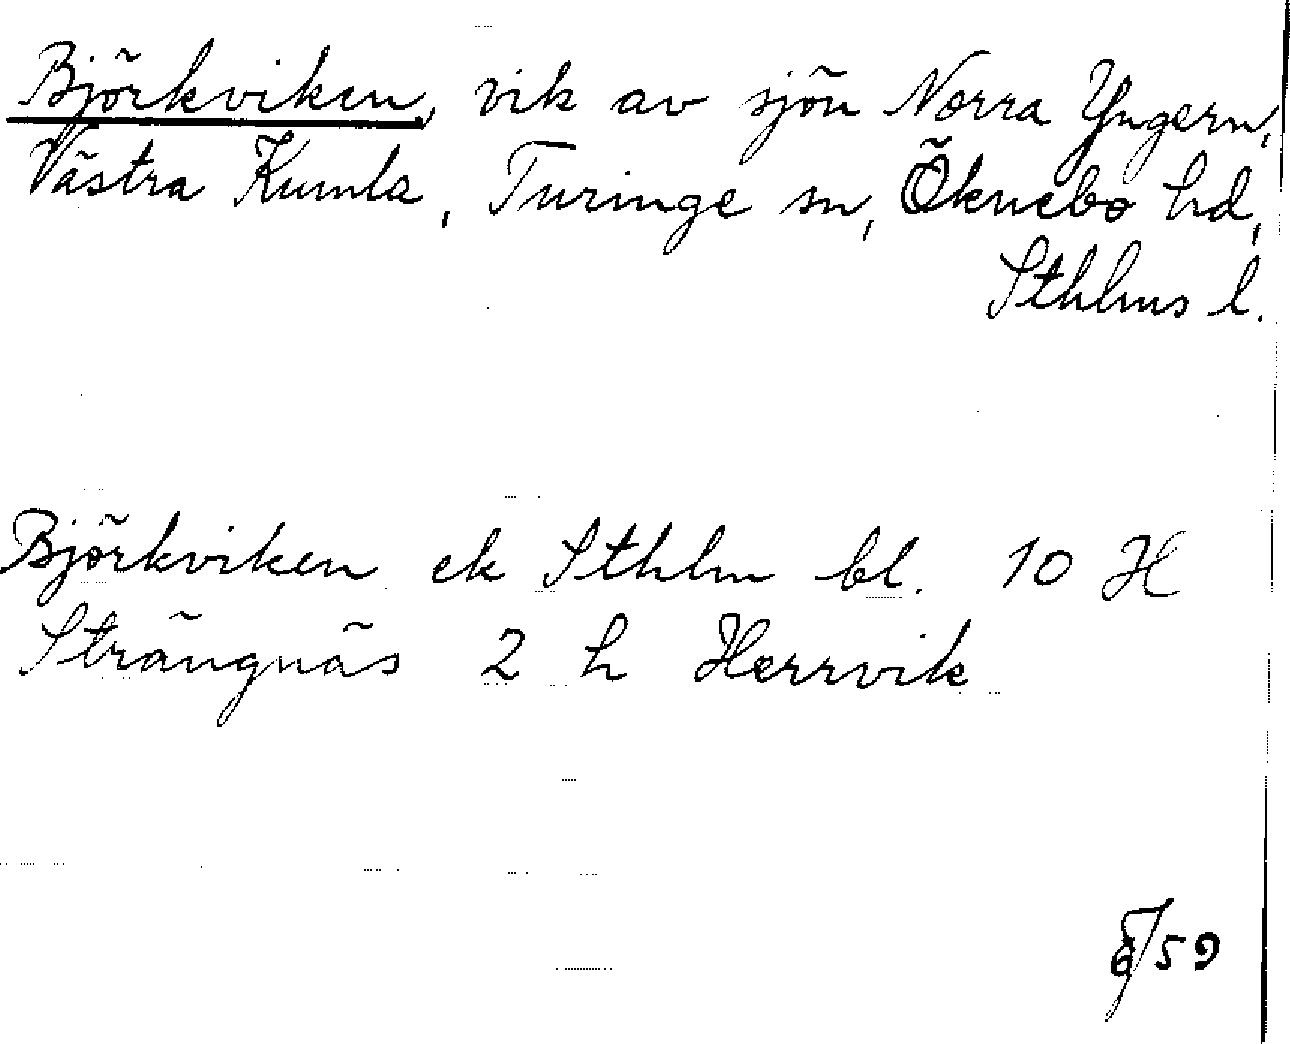 Björkviken, vik av sjön Norra Yngern,
Västra Kumla, Turinge sn, Öknebo hd,
Sthlms l.
Björkviken ek Sthlm bl. 10 H
Strängnäs 2 h Herrvik
59